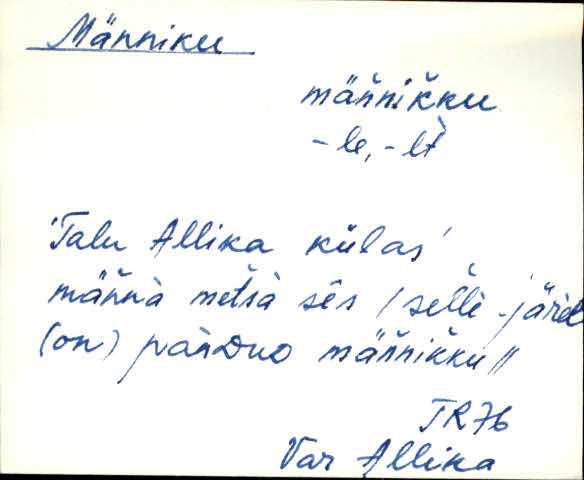 Männiku
mäňnik̆ku
-le, -lt̀
'Talu Allika külas'
mäňnà metsà sês / selle järel
(on) pànDuo mäňnik̆ku //
TR76
Var Allika